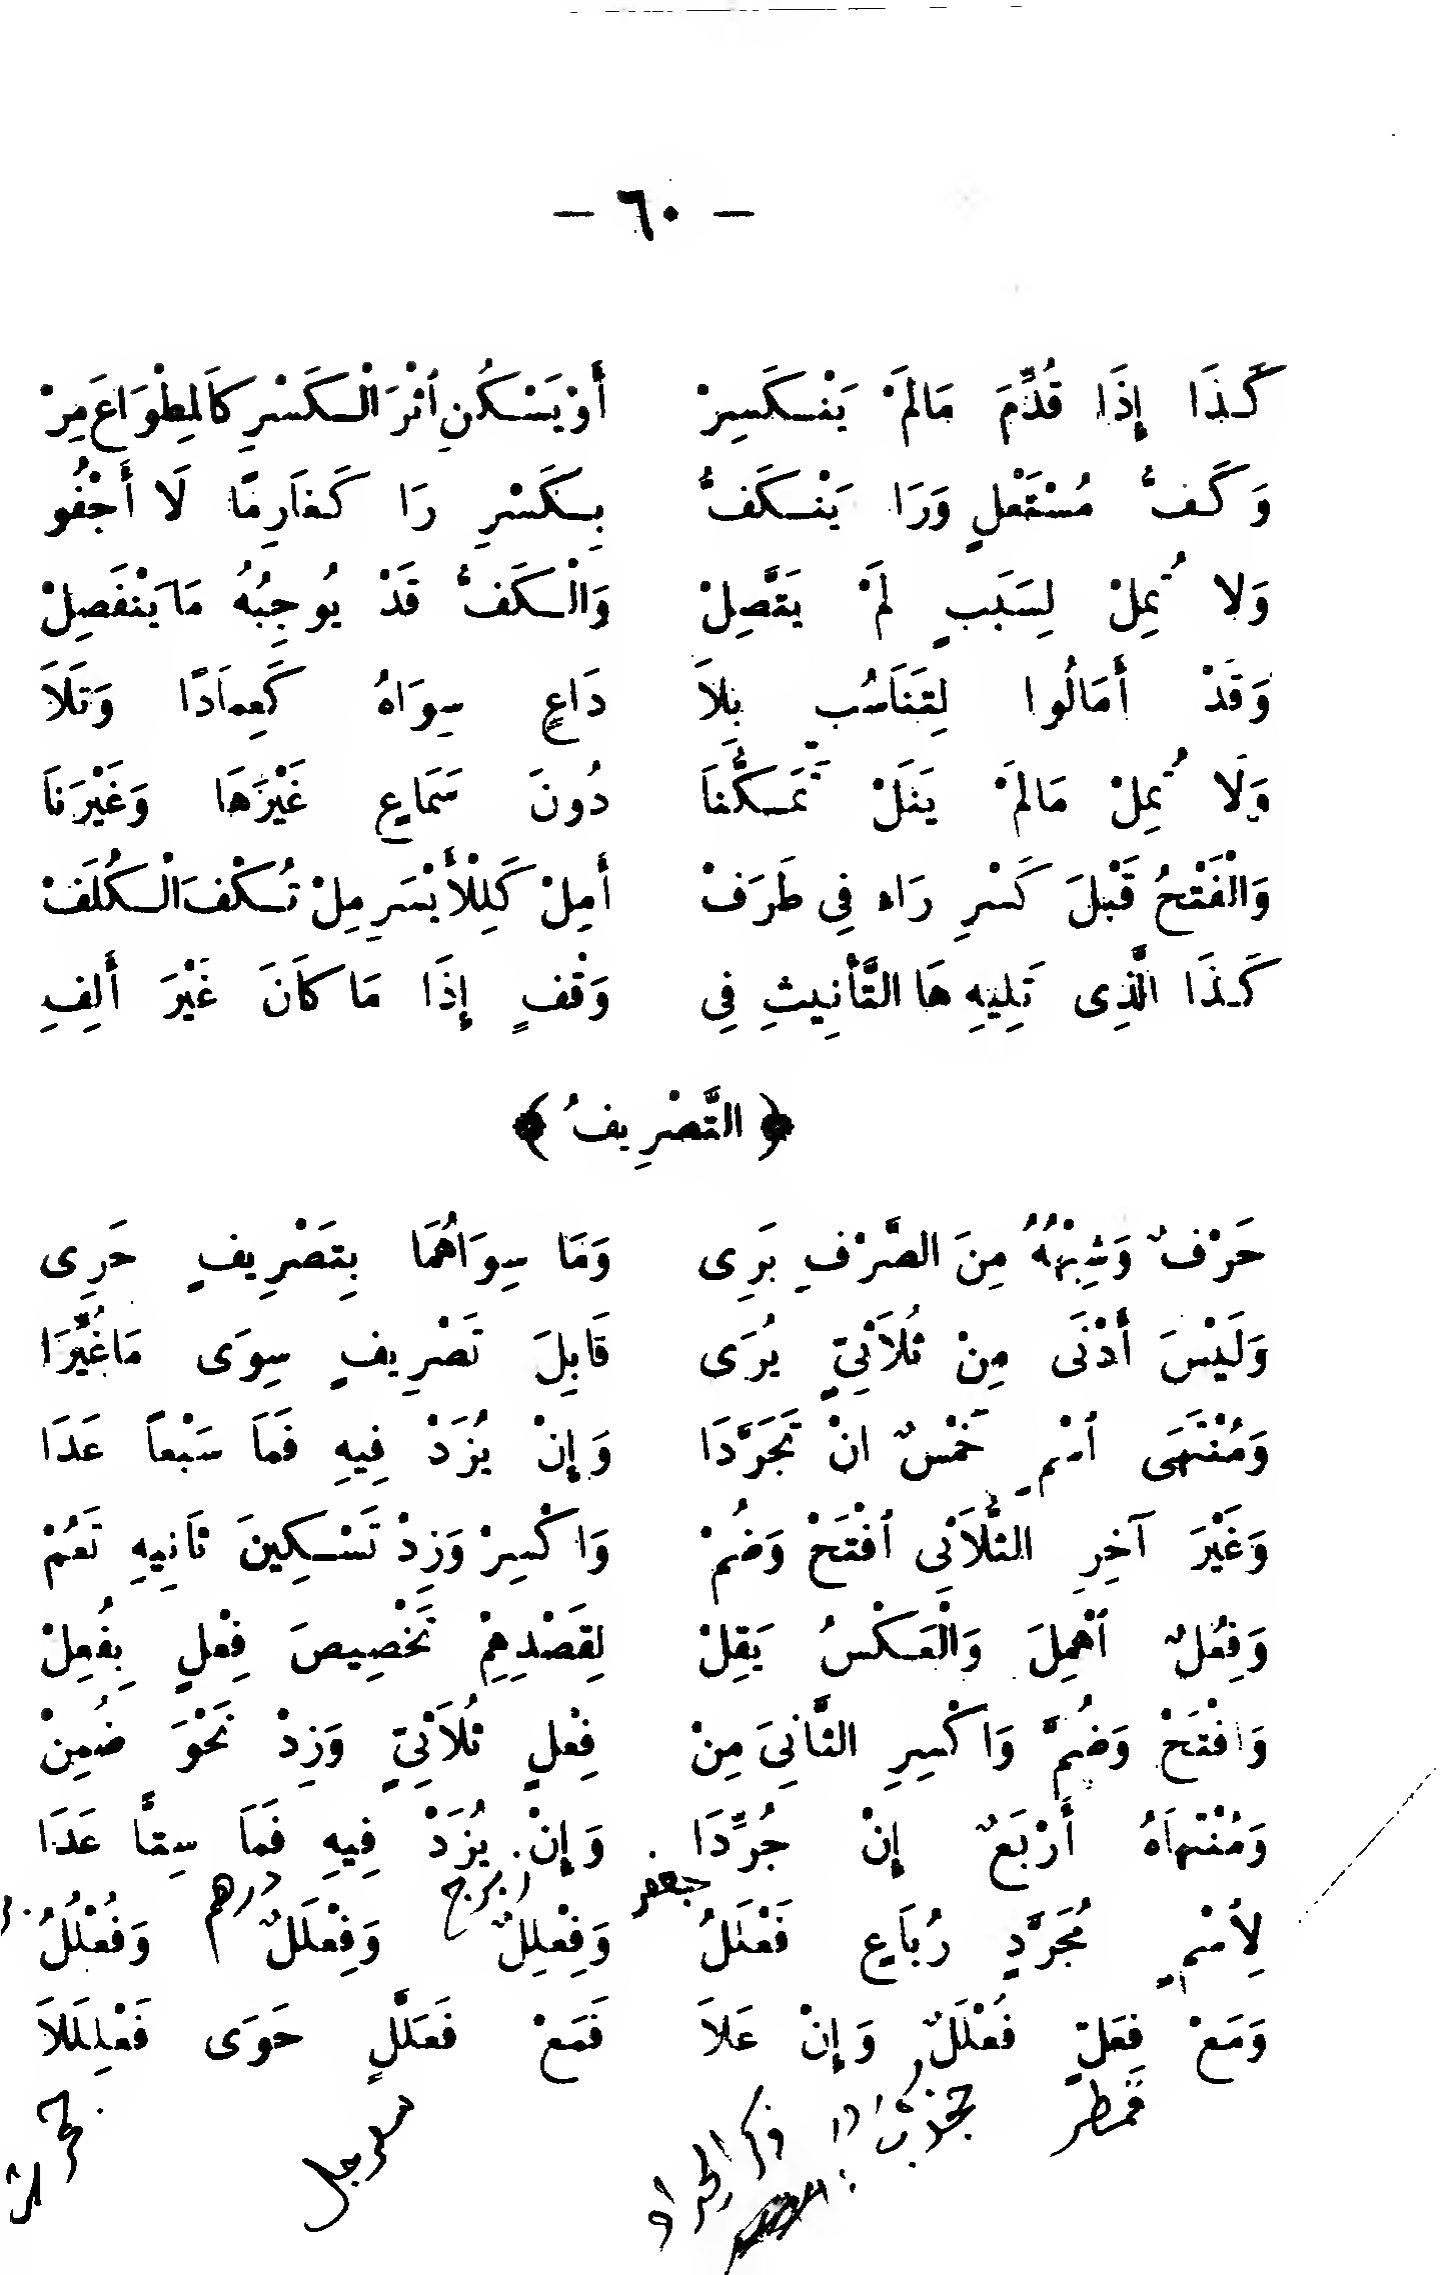 — ٦٠ —
كَذَا إِذَا قُدِّمَ مَالَمْ يَنْكَسِرْ أَوْ يَسْكُنِ ٱثْرَ الْكَسْرِ كَالْمِطْوَاعَ مِرْ
وَكَفُّ مُسْتَعْلٍ وَرَا يَنْكَفُّ بِكَسْرِ رَا كَغَارِمًا لَا أَجْفُو
وَلَا تُمِلْ لِسَبَبٍ لَمْ يَتَّصِلْ وَالْكَفُّ قَدْ يُوجِبُهُ مَا يَنْفَصِلْ
وَقَدْ أَمَالُوا لِتَنَاسُبٍ بِلَا دَاعٍ سِوَاهُ كَعِمَادًا وَتَلَا
وَلَا تُمِلْ مَالَمْ يَنَلْ تَمَكُّنَا دُونَ سَمَاعٍ غَيْرَهَا وَغَيْرَنَا
وَالْفَتْحُ قَبْلَ كَسْرِ رَاءٍ فِى طَرَفْ أَمِلْ كَلِلْأَيْسَرِ مِلْ تُكْفَ الْكُلَفْ
كَذَا الَّذِى تَلِيهِ هَا التَّأْنِيثِ فِى وَقْفٍ إِذَا مَا كَانَ غَيْرَ أَلِفِ
﴿ التَّصْرِيفُ ﴾
حَرْفٌ وَشِبْهُهُ مِنَ الصَّرْفِ بَرِى وَمَا سِوَاهُمَا بِتَصْرِيفٍ حَرِى
وَلَيْسَ أَدْنَى مِنْ ثُلَاثِيٍّ يُرَى قَابِلَ تَصْرِيفٍ سِوَى مَا غُيِّرَا
وَمُنْتَهَى ٱسْمٍ خَمْسٌ انْ تَجَرَّدَا وَإِنْ يُزَدْ فِيهِ فَمَا سَبْعًا عَدَا
وَغَيْرَ آخِرِ الثُّلَاثِى ٱفْتَحْ وَضُمْ وَاكْسِرْ وَزِدْ تَسْكِينَ ثَانِيهِ تَعُمْ
وَفِعُلٌ ٱهْمِلَ وَالْعَكْسُ يَقِلْ لِقَصْدِهِمْ تَخْصِيصَ فِعْلٍ بِفُعِلْ
وَافْتَحْ وَضُمَّ وَاكْسِرِ الثَّانِىَ مِنْ فِعْلٍ ثُلَاثِيٍّ وَزِدْ نَحْوَ ضُمِنْ
وَمُنْتَهَاهُ أَرْبَعٌ إِنْ جُرِّدَا وَإِنْ يُزَدْ فِيهِ فَمَا سِتًّا عَدَا
جعفر زبرج درهم
لِٱسْمٍ مُجَرَّدٍ رُبَاعٍ فَعْلَلُ وَفِعْلِلٌ وَفِعْلَلٌ وَفُعْلُلُ
وَمَعْ فِعَلٍّ فُعْلَلٌ وَإِنْ عَلَا فَمَعْ فَعَلَّلٍ حَوَى فَعْلَلِلَا
قمطر جخدب ذكر الجراد سفرجل